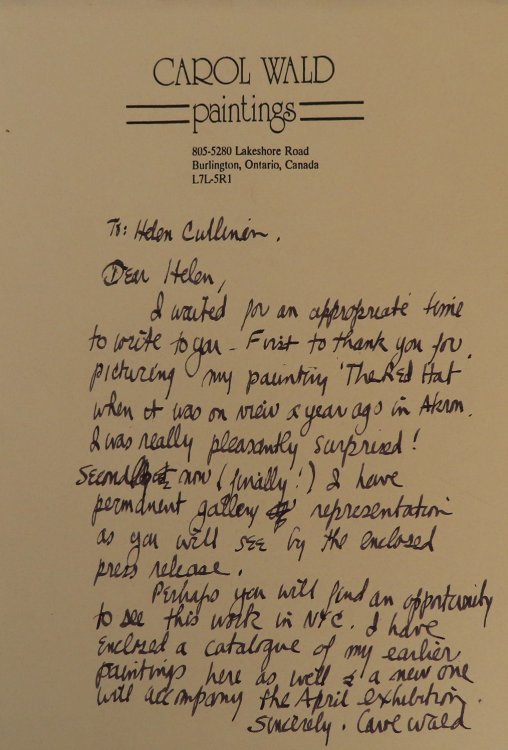 CAROL WALD
paintings
805-5280 Lakeshore Road
Burlington, Ontario, Canada
L7L-5R1
To: Helen Cullinan.
Dear Helen,
I waited for an appropriate time
to write to you - First to thank you for
picturing my painting 'The Red Hat'
when it was on view a year ago in Akron.
I was really pleasantly surprised!
Second now (finally!) I have
permanent gallery representation
as you will see by the enclosed
press release.
Perhaps you will find an opportunity
to see this work in NYC. I have
enclosed a catalogue of my earlier
paintings here as well & a new one
will accompany the April exhibition.
Sincerely. Carol Wald